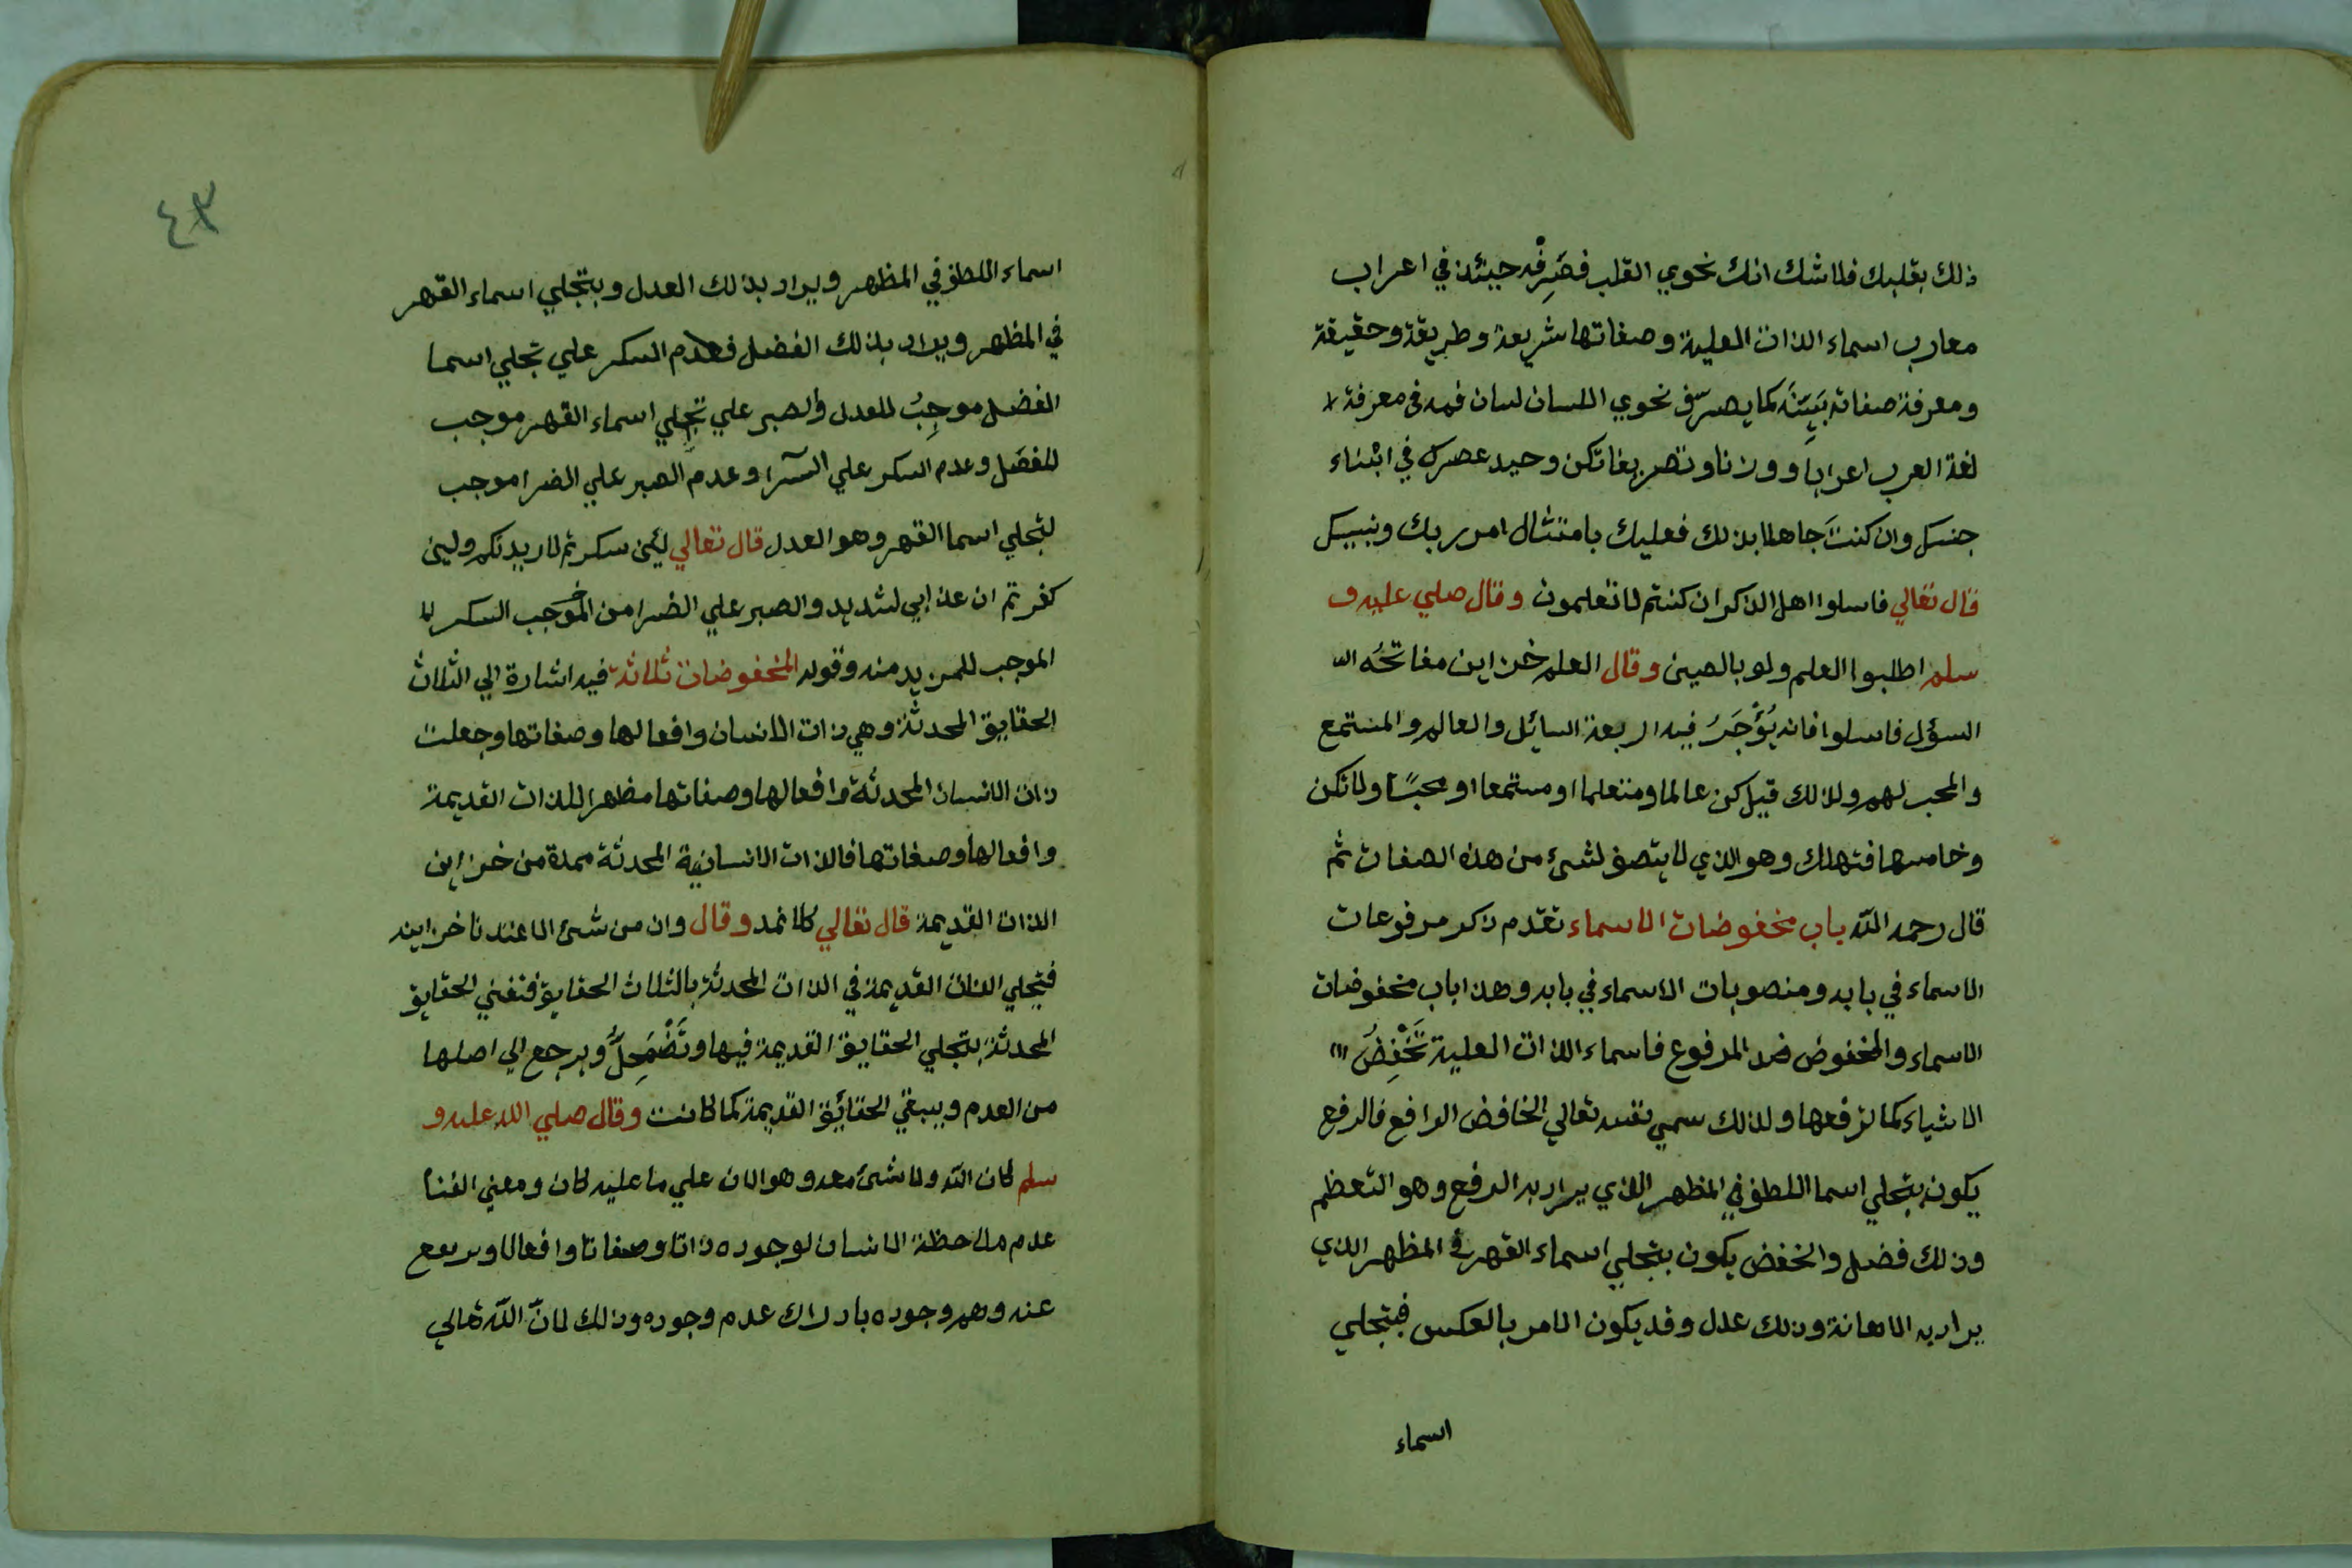 ذلك بقلبك فلا شك انك نحوي القلب فصَرِّفْه حينئذ في اعراب
معارب اسماء الذات العلية وصفاتها شريعة وطريقة وحقيقة
ومعرفة صفاته بَيِّنَة كما يصرّف نحوي اللسان لسان فمه في معرفة
لغة العرب اعرابا ووزنا وتصريفا تكن وحيد عصرك في ابناء
جنسك وان كنتَ جاهلا بذلك فعليك بامتثال امر ربك ونبيك
قال تعالي فاسلوا اهل الذكر ان كنتم لا تعلمون وقال صلي عليه و
سلم اطلبوا العلم ولو بالصين وقال العلم خزاين مفاتحُه ال
السؤل فاسلوا فانه يُؤْجَرُ فيه اربعة السائل والعالم والمستمع
والمحب لهم ولذلك قيل كن عالما ومتعلما او مستمعا او محبًا ولا تكن
وخامسها فتهلك وهو الذي لا يتصف لشئ من هذه الصفات ثم
قال رحمه الله باب مخفوضات الاسماء تقدم ذكر مرفوعات
الاسماء في بابه ومنصوبات الاسماء في بابه وهذا باب مخفوضات
الاسماء والمخفوض ضد المرفوع فاسماء الذات العلية تَخْفِضُ ال
الاشياء كما ترفعها ولذلك سمي نفسه تعالي الخافض الرافع فالرفع
يكون بتجلي اسما اللطف في المظهر الذي يراد به الرفع وهو التعظم
وذلك فضل والخفض يكون بتجلي اسماء القهر في المظهر الذي
يراد به الاهانة وذلك عدل وقد يكون الامر بالعكس فيتجلي
اسماء
٤٣
اسماء اللطف في المظهر ويراد بذلك العدل ويتجلي اسماء القهر
في المظهر ويراد بذلك الفضل فعدم السكر علي تجلي اسما
الفضل موجِبُ للعدل والصبر علي تجلي اسماء القهر موجب
للفضل وعدم السكر علي السّرا وعدم الصبر علي الضرا موجب
لتجلي اسما القهر وهو العدل قال تعالي لئن سكرتم لازيدنكم ولين
كفرتم ان عذابي لشديد والصبر علي الضرا من الموجب السكر
الموجب للمزيد منه وقوله المخفوضات ثلاثة فيه اشارة الي الثلاث
الحقايق المحدثة وهي ذات الانسان وافعالها وصفاتها وجعلت
ذات الانسان المحدثة وافعالها وصفاتها مظهرا للذات القديمة
وافعالها وصفاتها فالذات الانسانية المحدثة ممدة من خزاين
الذات القديمة قال تعالي كلا نمد وقال وان من شئ الا عندنا خزاينه
فتجلي الذات القديمة في الذات المحدثة بالثلاث الحقايق فتفني الحقايق
المحدثة بتجلي الحقايق القديمة فيها وتَضْمَحِلُّ ويرجع الي اصلها
من العدم ويبقي الحقائق القديمة كما كانت وقال صلي الله عليه و
سلم كان الله ولا شئ معه وهو الان علي ما عليه كان ومعني الفنا
عدم ملاحظة الانسان لوجوده ذاتا وصفاتا وافعالا ويرفع
عنه وهم وجوده بادراك عدم وجوده وذلك لانّ الله تعالي